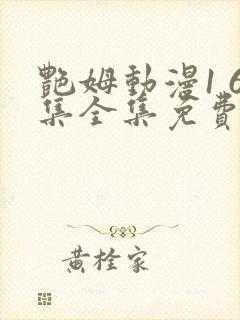 艷姆動漫1 6
集全集免費
黄栓家